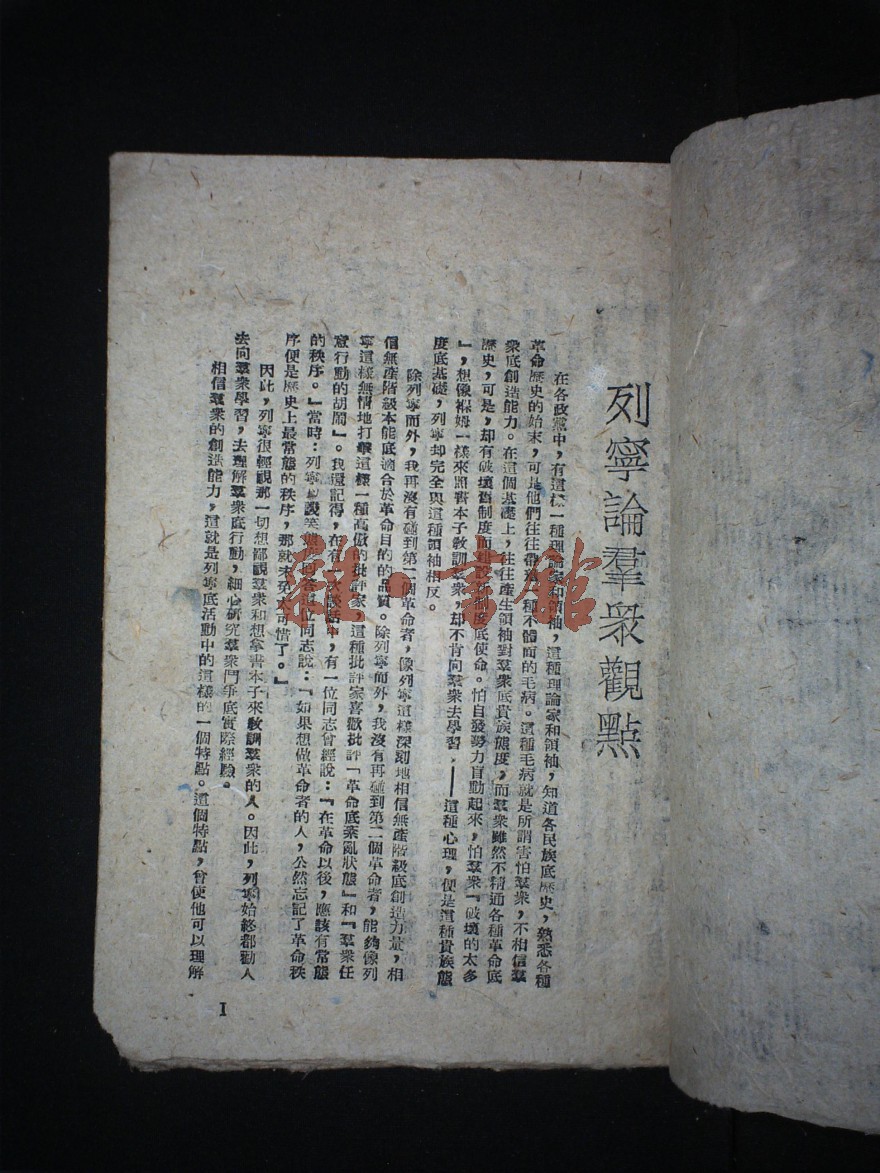 列寧論羣衆觀點
在各政黨中，有這樣一種理論家和領袖，這種理論家和領袖，知道各民族底歷史，熟悉各種
革命歷史的始末，可是他們往往帶着一種不體面的毛病。這種毛病就是所謂害怕羣衆，不相信羣
衆底創造能力。在這個基礎上，往往產生領袖對羣衆底貴族態度，而羣衆雖然不精通各種革命底
歷史，可是，却有破壞舊制度而建設新制度底使命。怕自發勢力盲動起來，怕羣衆『破壞的太多
』，想像褓姆一樣來照書本子敎訓羣衆，却不肯向羣衆去學習，——這種心理，便是這種貴族態
度底基礎，列寧却完全與這種領袖相反。
除列寧而外，我再沒有碰到第二個革命者，像列寧這樣深刻地相信無產階級底創造力量，相
信無產階級本能底適合於革命目的的品質。除列寧而外，我沒有再碰到第二個革命者，能夠像列
寧這樣無情地打擊這樣一種高傲的批評家，這種批評家喜歡批評「革命底紊亂狀態」和『羣衆任
意行動的胡鬧』。我還記得，在有一次談話中，有一位同志曾經說：『在革命以後，應該有常態
的秩序。』當時：列寧以說笑 位同志說：『如果想做革命者的人，公然忘記了革命秩
序便是歷史上最常態的秩序，那就未免太可惜了。』
因此，列寧很輕視那一切想鄙視羣衆和想拿書本子來敎訓羣衆的人。因此，列寧始終都勸人
去向羣衆學習，去理解羣衆底行動，細心研究羣衆鬥爭底實際經驗。
相信羣衆的創造能力，這就是列寧底活動中的這樣的一個特點。這個特點，會使他可以理解
1
雜·書館